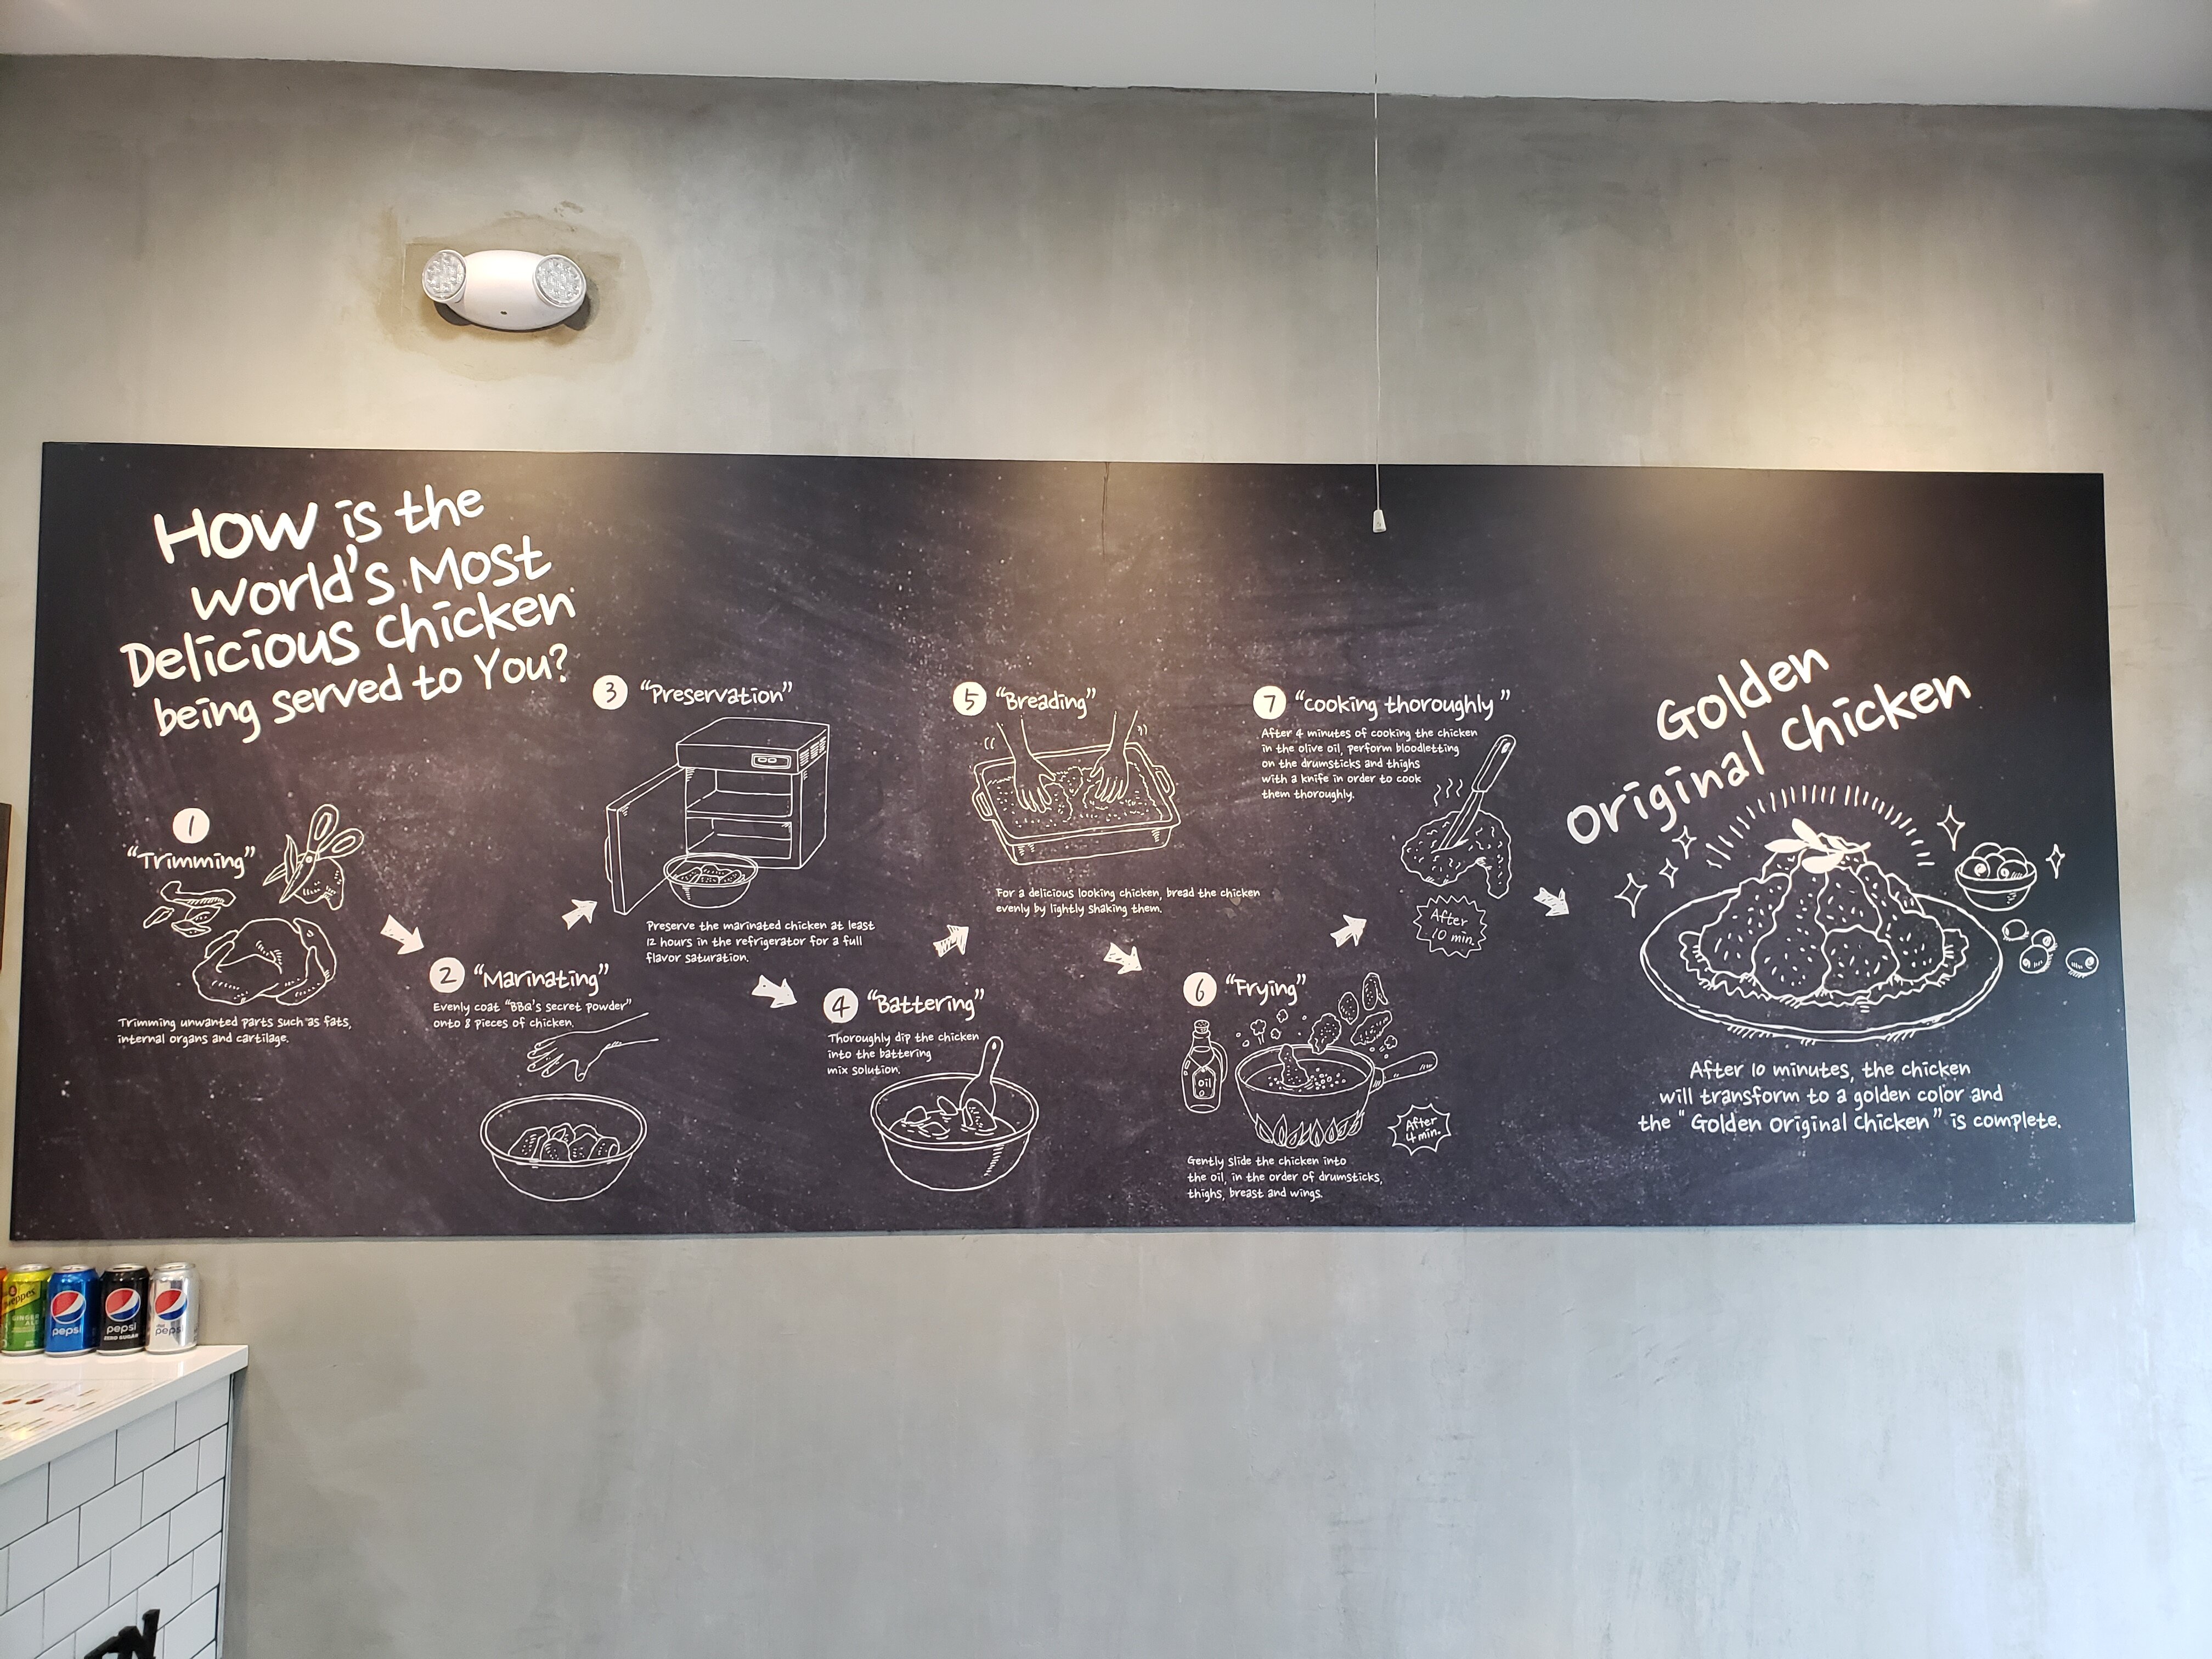 How is the
world's Most
Delicious chicken
being served to You?
1
"Trimming"
Trimming unwanted parts such as fats,
internal organs and cartilage.
2 "Marinating"
Evenly coat "BBQ's secret powder"
onto 8 pieces of chicken.
3 "Preservation"
Preserve the marinated chicken at least
12 hours in the refrigerator for a full
flavor saturation.
4 "Battering"
Thoroughly dip the chicken
into the battering
mix solution.
5 "Breading"
For a delicious looking chicken, bread the chicken
evenly by lightly shaking them.
6 "Frying"
oil
After
4 min.
Gently slide the chicken into
the oil, in the order of drumsticks,
thighs, breast and wings.
7 "cooking thoroughly"
After 4 minutes of cooking the chicken
in the olive oil, perform bloodletting
on the drumsticks and thighs
with a knife in order to cook
them thoroughly.
After
10 min.
Golden
original chicken
After 10 minutes, the chicken
will transform to a golden color and
the "Golden original chicken" is complete.
GINGER
ALE
pepsi
pepsi
ZERO SUGAR
diet
pepsi